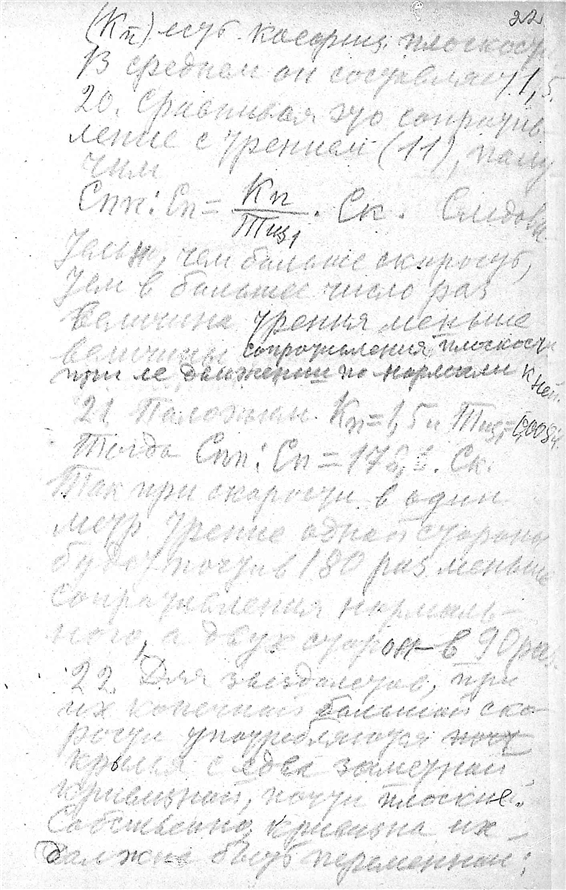 22
(Кп) есть коефиц. плоскости
В среднем он составляет 1,5.
20. Сравнивая это сопротив-
ление с трением (11), полу-
чим
Спп : Сп = Кп / Тщ1 · Ск. Следова-
тельн, чем больше скорость,
тем в большее число раз
величина трения меньше
величины сопротивления плоскости
при ее движении по нормали к ней.
21. Положим Кп = 1,5 и Тщ1 =
Тогда Спп : Сп = Ск.
Так при скорости в один
метр трение одной стороны
будет почти в 180 раз меньше
сопротивления нормаль-
ного, а двух сторон – в 90 раз.
22. Для звездолетов, при
их конечной большой ско-
рости употребляются
крылья с едва заметной
кривизной, почти плоские.
Собственно, кривизна их
должна быть переменной;